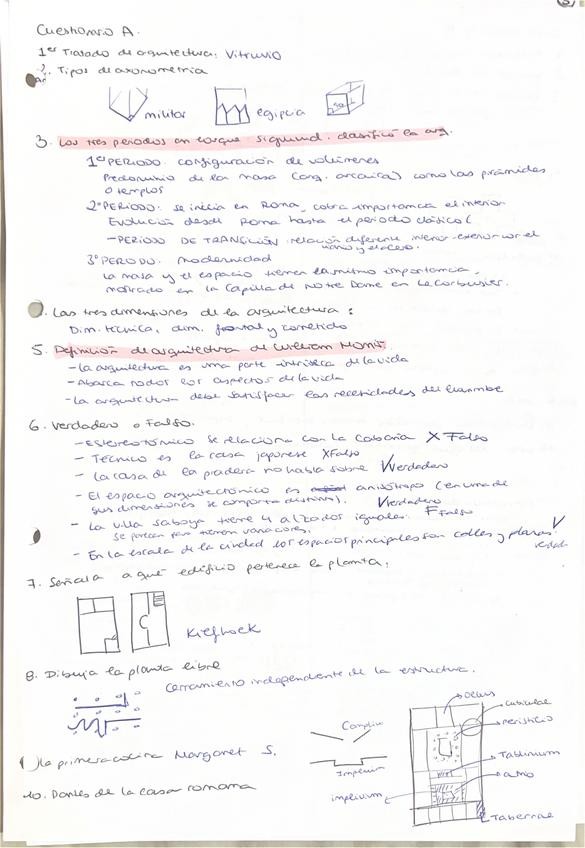 Cuestionario A.
1er Tratado de arquitectura: Vitruvio
2. Tipos de axonometría
militar egipcia
3. Los tres periodos en los que Sigmund clasificó la arq.
1er PERIODO: configuración de volúmenes
Predominio de la masa (arq. arcaica) como las pirámides
o templos
2º PERIODO: se inicia en Roma, cobra importancia el interior
Evolución desde Roma hasta el periodo clásico (
- PERIODO DE TRANSICIÓN: relación diferente interior-exterior por el
hierro y el acero.
3º PERIODO: modernidad
la masa y el espacio tienen la misma importancia.
mostrado en la Capilla de Notre Dame en Le Corbusier.
. Las tres dimensiones de la arquitectura:
Dim. técnica, dim. frontal y cometido
5. Definición de arquitectura de William Morris.
- La arquitectura es una parte intrínseca de la vida
- Abarca todos los aspectos de la vida
- La arquitectura debe satisfacer las necesidades del hombre
6. Verdadero o Falso.
- Estereotómico se relaciona con la cabaña X Falso
- Tectónico es la casa japonesa X Falso
- La casa de la pradera no había sobre V Verdadero
- El espacio arquitectónico es anisótropo (en una de
sus dimensiones se comporta distinto). Verdadero
- La villa saboya tiene 4 alzados iguales. F Falso
se parecen pero tienen variaciones.
- En la escala de la ciudad los espacios principales son calles y plazas. V
verdad
7. Señala a qué edificio pertenece la planta.
Kiefhoek
8. Dibuja la planta libre
Cerramiento independiente de la estructura.
9) la primera cocina Margaret S.
10. Partes de la casa romana
Complu
Impluvium
implivium
Oecus
cubiculae
peristilo
Tablinum
atrio
Tabernae